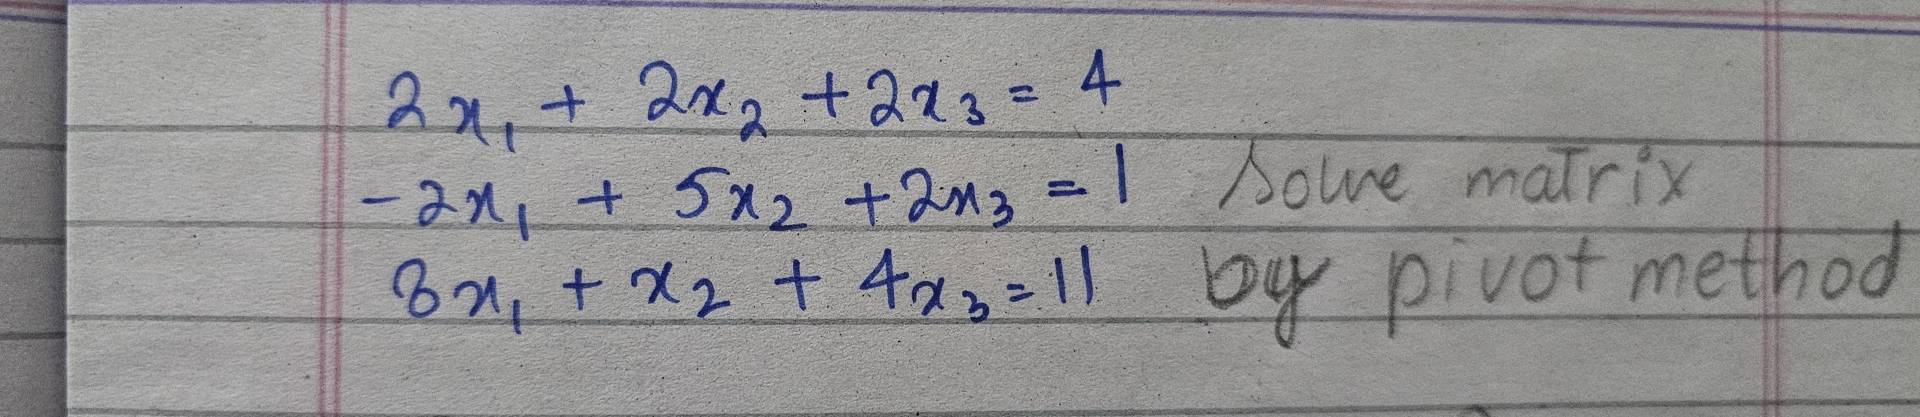 2x₁ + 2x₂ + 2x₃ = 4
-2x₁ + 5x₂ + 2x₃ = 1 Solve matrix
8x₁ + x₂ + 4x₃ = 11 by pivot method